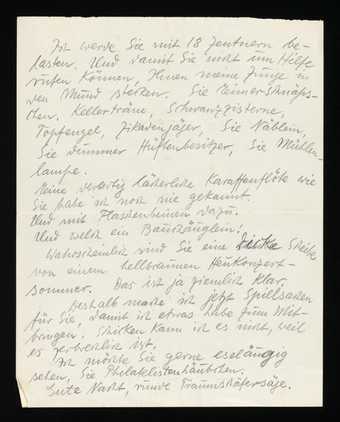 Ich werde Sie mit 18 Zentnern be-
lasten. Und damit Sie nicht um Hilfe
rufen können, Ihnen meine Zunge in
den Mund stecken. Sie
chen. Kellerträne, Schwanzzisterne,
Topfengel, Zikadenjäger, Sie Näblein,
Sie dummer Hüftenbesitzer, Sie Mühlen-
lampe.
Eine derartig lächerliche Karaffenflöte wie
Sie habe ich noch nie gekannt.
Und mit Flaschenbeinen dazu.
Und welch ein Bauchzünglein!
Wahrscheinlich sind Sie eine dicke Scheibe
von einem hellbraunen Heukonzert-
sommer. Das ist ja ziemlich klar.
Deshalb mache ich jetzt Spillsachen
für Sie, damit ich etwas habe zum Mit-
bringen. Schicken kann ich es nicht, weil
es zerbrechlich ist.
Ich möchte Sie gerne eseläugig
sehen, Sie Philatelistenhäubchen.
Gute Nacht, runde Traumkäfersäge.